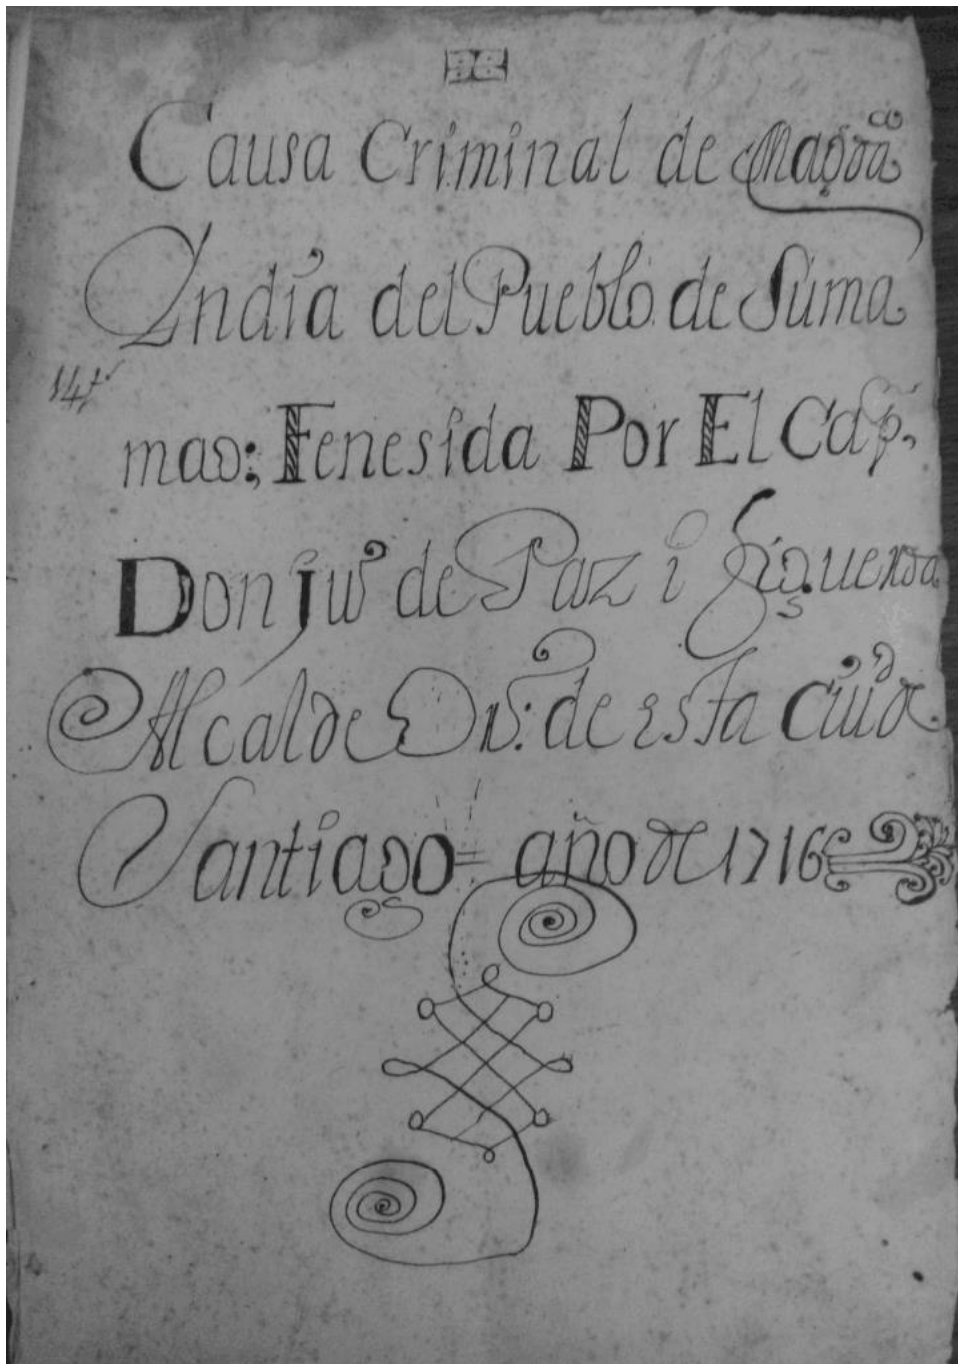 Causa Criminal de Magda
Yndia del Pueblo de Suma
mao; Fenesida Por El Cap.
Don Ju.o de Paz i Figueroa
Alcalde de esta ciud
Santiago = año de 1716